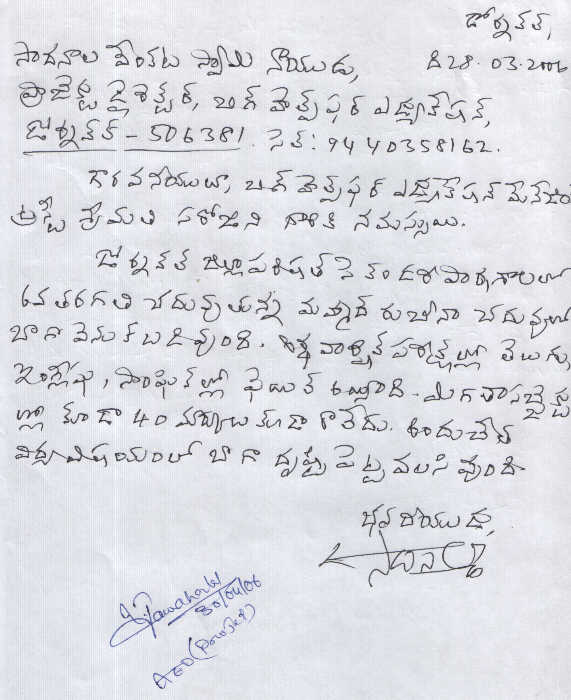 డోర్నకల్,
సాధనాల వేంకట స్వామి నాయుడు, ది 28.03.2006
ప్రాజెక్టు డైరెక్టర్, బాగ్ హెల్ప్ ఫర్ ఎడ్యుకేషన్,
డోర్నకల్ - 506381. సెల్: 9440358162.
గౌరవనీయులు, బాగ్ హెల్ప్ ఫర్ ఎడ్యుకేషన్ మేనేజింగ్
ట్రస్టీ శ్రీమతి సరోజిని గారికి నమస్సులు.
డోర్నకల్ జిల్లా పరిషత్ సెకండరీ పాఠశాలలో
6వ తరగతి చదువుతున్న మహ్మద్ రుబీనా చదువులో
బాగా వెనుకబడివుంది. వార్షిక పరీక్షల్లో తెలుగు,
ఇంగ్లీషు, సాంఘికల్లో ఫెయిల్ అయ్యింది. మిగతా సబ్జెక్టు
ల్లో కూడా 40 మార్కులు కూడా రాలేదు. అందుచేత
విద్యా విషయంలో బాగా దృష్టి పెట్టవలసి వుంది
భవదీయుడు,
30/04/06
AEO (Project)